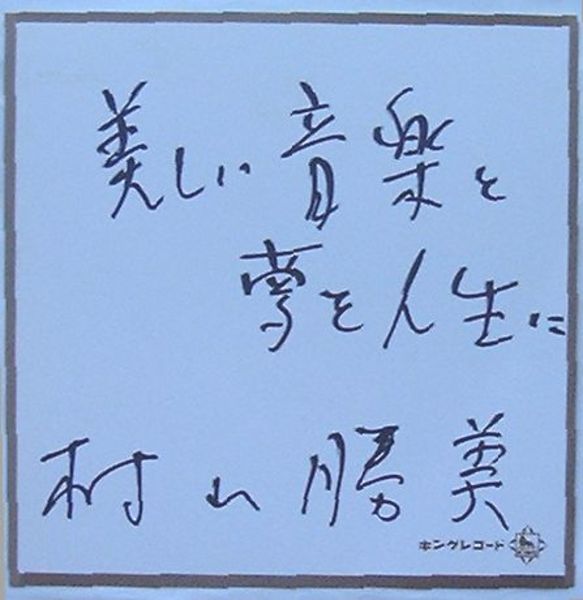 美しい音楽と
夢を人生に
村山勝美
キングレコード